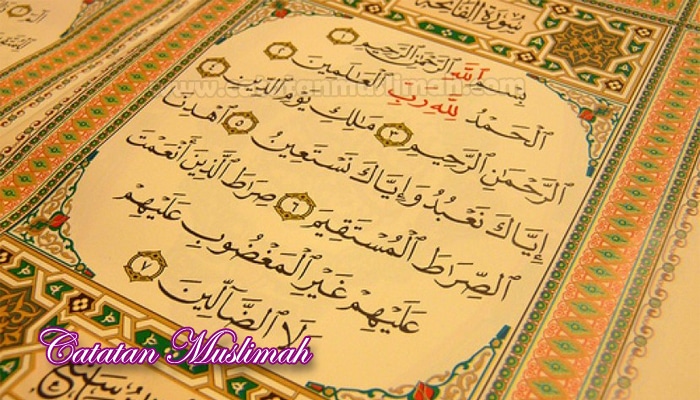 سُورَةُ الْفَاتِحَةِ
بِسْمِ ٱللَّهِ ٱلرَّحْمَٰنِ ٱلرَّحِيمِ ١
ٱلْحَمْدُ لِلَّهِ رَبِّ ٱلْعَٰلَمِينَ ٢
ٱلرَّحْمَٰنِ ٱلرَّحِيمِ ٣ مَٰلِكِ يَوْمِ ٱلدِّينِ ٤
إِيَّاكَ نَعْبُدُ وَإِيَّاكَ نَسْتَعِينُ ٥ ٱهْدِنَا
ٱلصِّرَٰطَ ٱلْمُسْتَقِيمَ ٦ صِرَٰطَ ٱلَّذِينَ أَنْعَمْتَ
عَلَيْهِمْ غَيْرِ ٱلْمَغْضُوبِ عَلَيْهِمْ
وَلَا ٱلضَّآلِّينَ ٧
www.catatanmuslimah.com
Catatan Muslimah